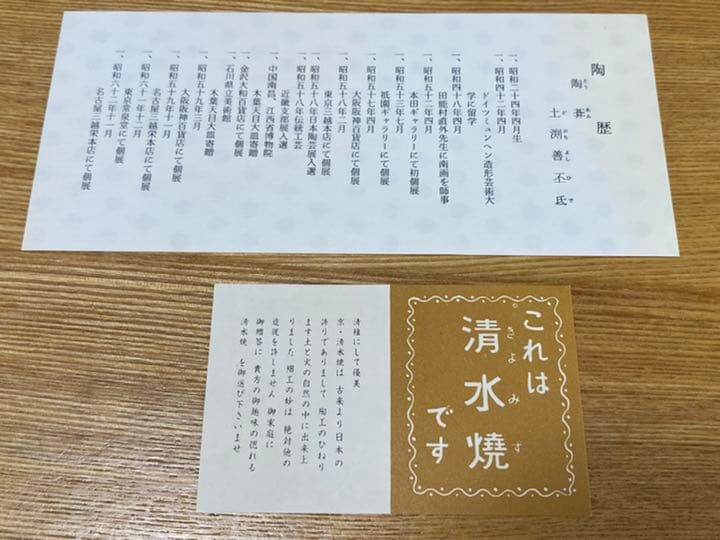 陶歴
陶葊
とう あん
土渕善丕氏
ど ぶち よし ひで
一、昭和二十四年四月生
一、昭和四十二年四月
ドイツミュンヘン造形芸術大
学に留学
一、昭和四十八年四月
田能村直外先生に南画を師事
一、昭和五十二年四月
本田ギャラリーにて初個展
一、昭和五十三年七月
祇園ギャラリーにて個展
一、昭和五十七年四月
大阪阪神百貨店にて個展
一、昭和五十八年二月
東京三越本店にて個展
一、昭和五十八年日本陶芸展入選
一、昭和五十八年伝統工芸
近畿支部展入選
一、中国南昌、江西省博物院
木葉天目大皿寄贈
一、金沢大和百貨店にて個展
一、石川県立美術館
木葉天目大皿寄贈
一、昭和五十九年三月
大阪阪神百貨店にて個展
一、昭和五十九年十一月
名古屋三越栄本店にて個展
一、昭和六十一年十二月
東京常泉堂にて個展
一、昭和六十二年十一月
名古屋三越栄本店にて個展
これは
清水焼
きよみず
です
清雅にして優美
京・清水焼は 古来より日本の
誇りでありまして 陶工のひねり
ます土と火の自然の中に出来上
りました 細工の妙は 絶対他の
追従を許しません 御家庭に
御贈答に 貴方の御趣味の溢れる
清水焼 を御選び下さいませ